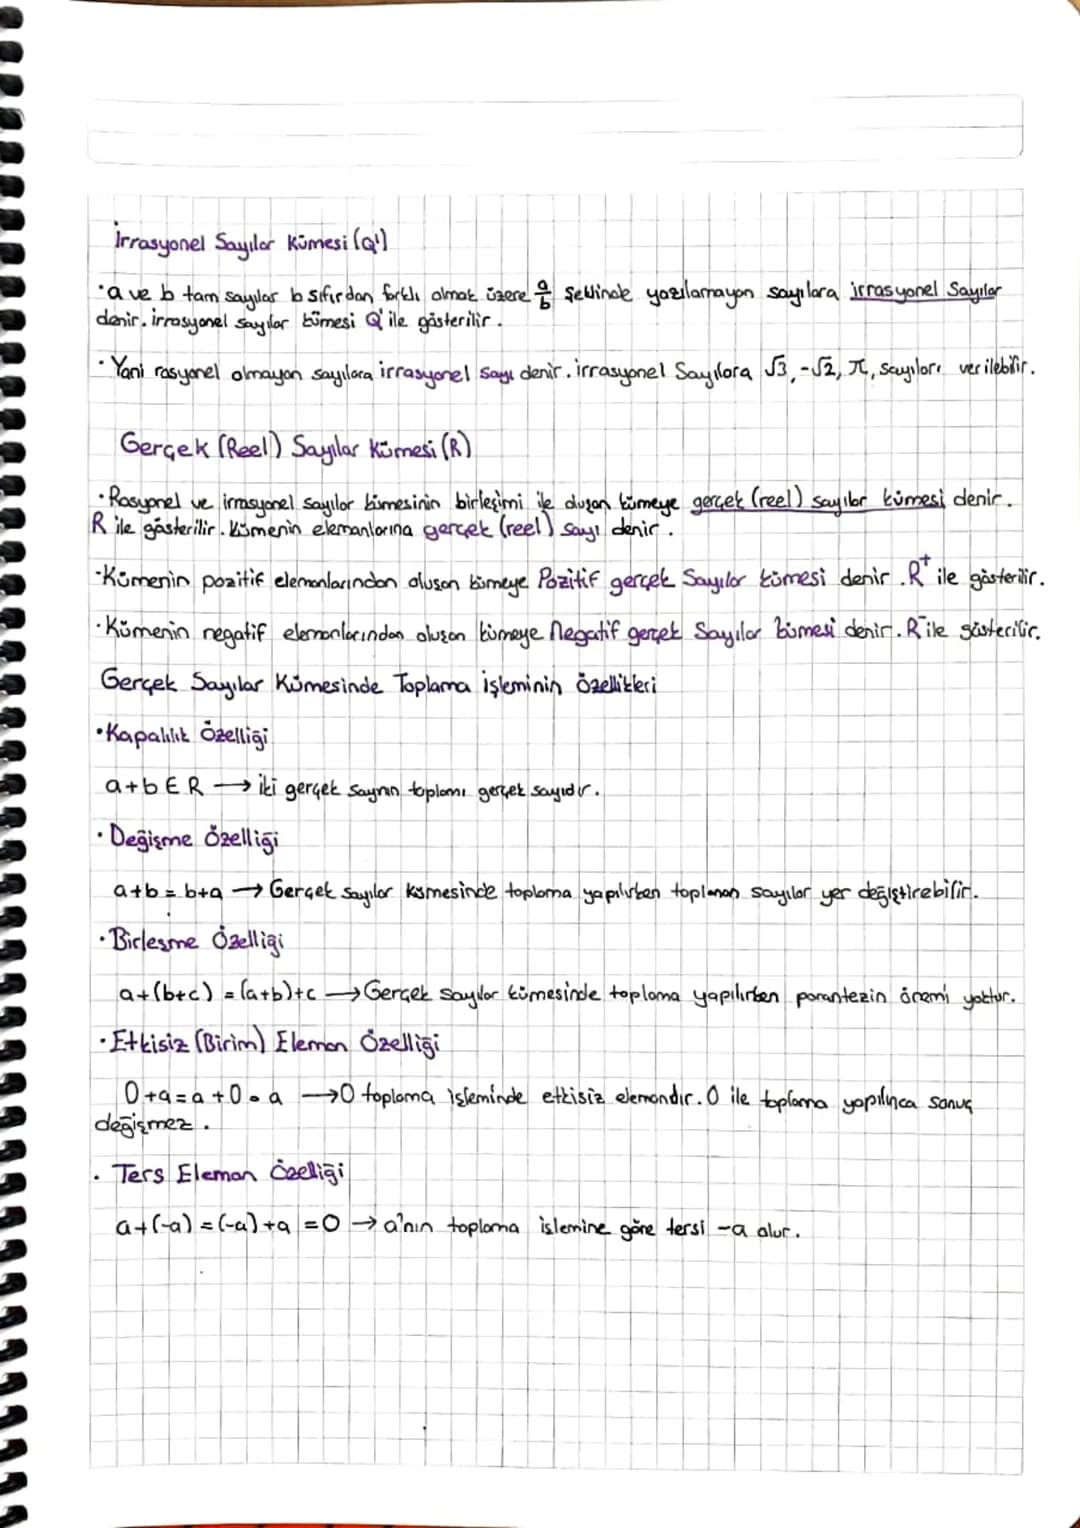 İrrasyonel Sayılar Kümesi (Q')
·a ve b tam sayılar b sıfırdan farklı olmak üzere a/b şeklinde yazılamayan sayılara irrasyonel Sayılar
denir. irrasyonel sayılar kümesi Q' ile gösterilir.
· Yani rasyonel olmayan sayılara irrasyonel sayı denir. irrasyonel Sayılara √3, -√2, π, sayıları verilebilir.
Gerçek (Reel) Sayılar Kümesi (R)
· Rasyonel ve irrasyonel sayılar kümesinin birleşimi ile oluşan kümeye gerçek (reel) sayılar kümesi denir.
R ile gösterilir. Kümenin elemanlarına gerçek (reel) sayı denir.
·Kümenin pozitif elemanlarından oluşan kümeye Pozitif gerçek Sayılar kümesi denir. R⁺ ile gösterilir.
·Kümenin negatif elemanlarından oluşan kümeye Negatif gerçek Sayılar kümesi denir. R⁻ ile gösterilir.
Gerçek Sayılar Kümesinde Toplama işleminin özellikleri
·Kapalılık Özelliği
a+b ∈ R → iki gerçek sayının toplamı gerçek sayıdır.
· Değişme Özelliği
a+b = b+a → Gerçek sayılar kümesinde toplama yapılırken toplanan sayılar yer değiştirebilir.
· Birleşme Özelliği
a+(b+c) = (a+b)+c → Gerçek sayılar kümesinde toplama yapılırken parantezin önemi yoktur.
· Etkisiz (Birim) Eleman Özelliği
0+a = a+0 = a → 0 toplama işleminde etkisiz elemandır. 0 ile toplama yapılınca sonuç
değişmez.
· Ters Eleman Özelliği
a+(-a) = (-a)+a = 0 → a'nın toplama işlemine göre tersi -a olur.